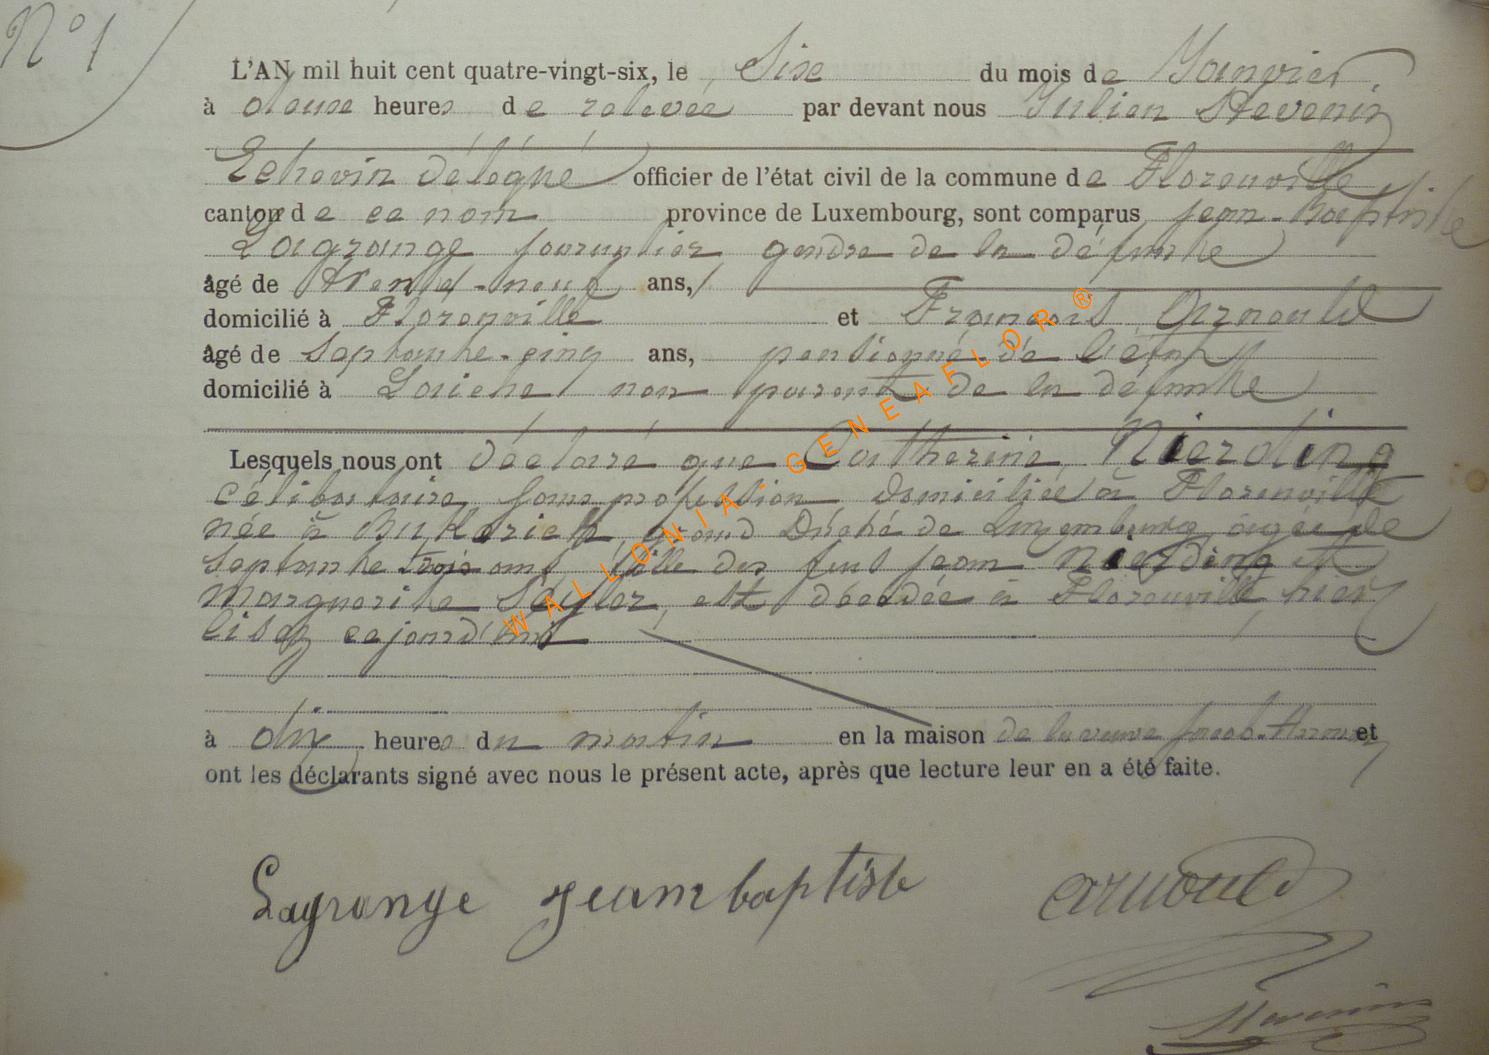 N° 1
L'AN mil huit cent quatre-vingt-six, le Six du mois de Janvier
à douse heures de relevée par devant nous Julien Stevenin
Echevin délégué officier de l'état civil de la commune de Florenville
canton de ce nom province de Luxembourg, sont comparus jean-Baptiste
Lagrange journalier gendre de la défunte
âgé de trente-neuf ans,
domicilié à Florenville et François Arnould
âgé de Septante-cinq ans, pensionné de l'état
domicilié à non parent de la défunte
Lesquels nous ont déclaré que Catherine Nierding
célibataire, sans profession domiciliée à Florenville
née à grand Duché de Luxembourg âgée de
septante trois ans fille des feus jean Nierding et
Marguerite est décédée à Florenville hier
lisez cejourd'hui
à dix heures du matin en la maison de la veuve jacob et
ont les déclarants signé avec nous le présent acte, après que lecture leur en a été faite.
Lagrange jeambaptiste arnould
Stevenin
WALLONIA GENEAFLOR®